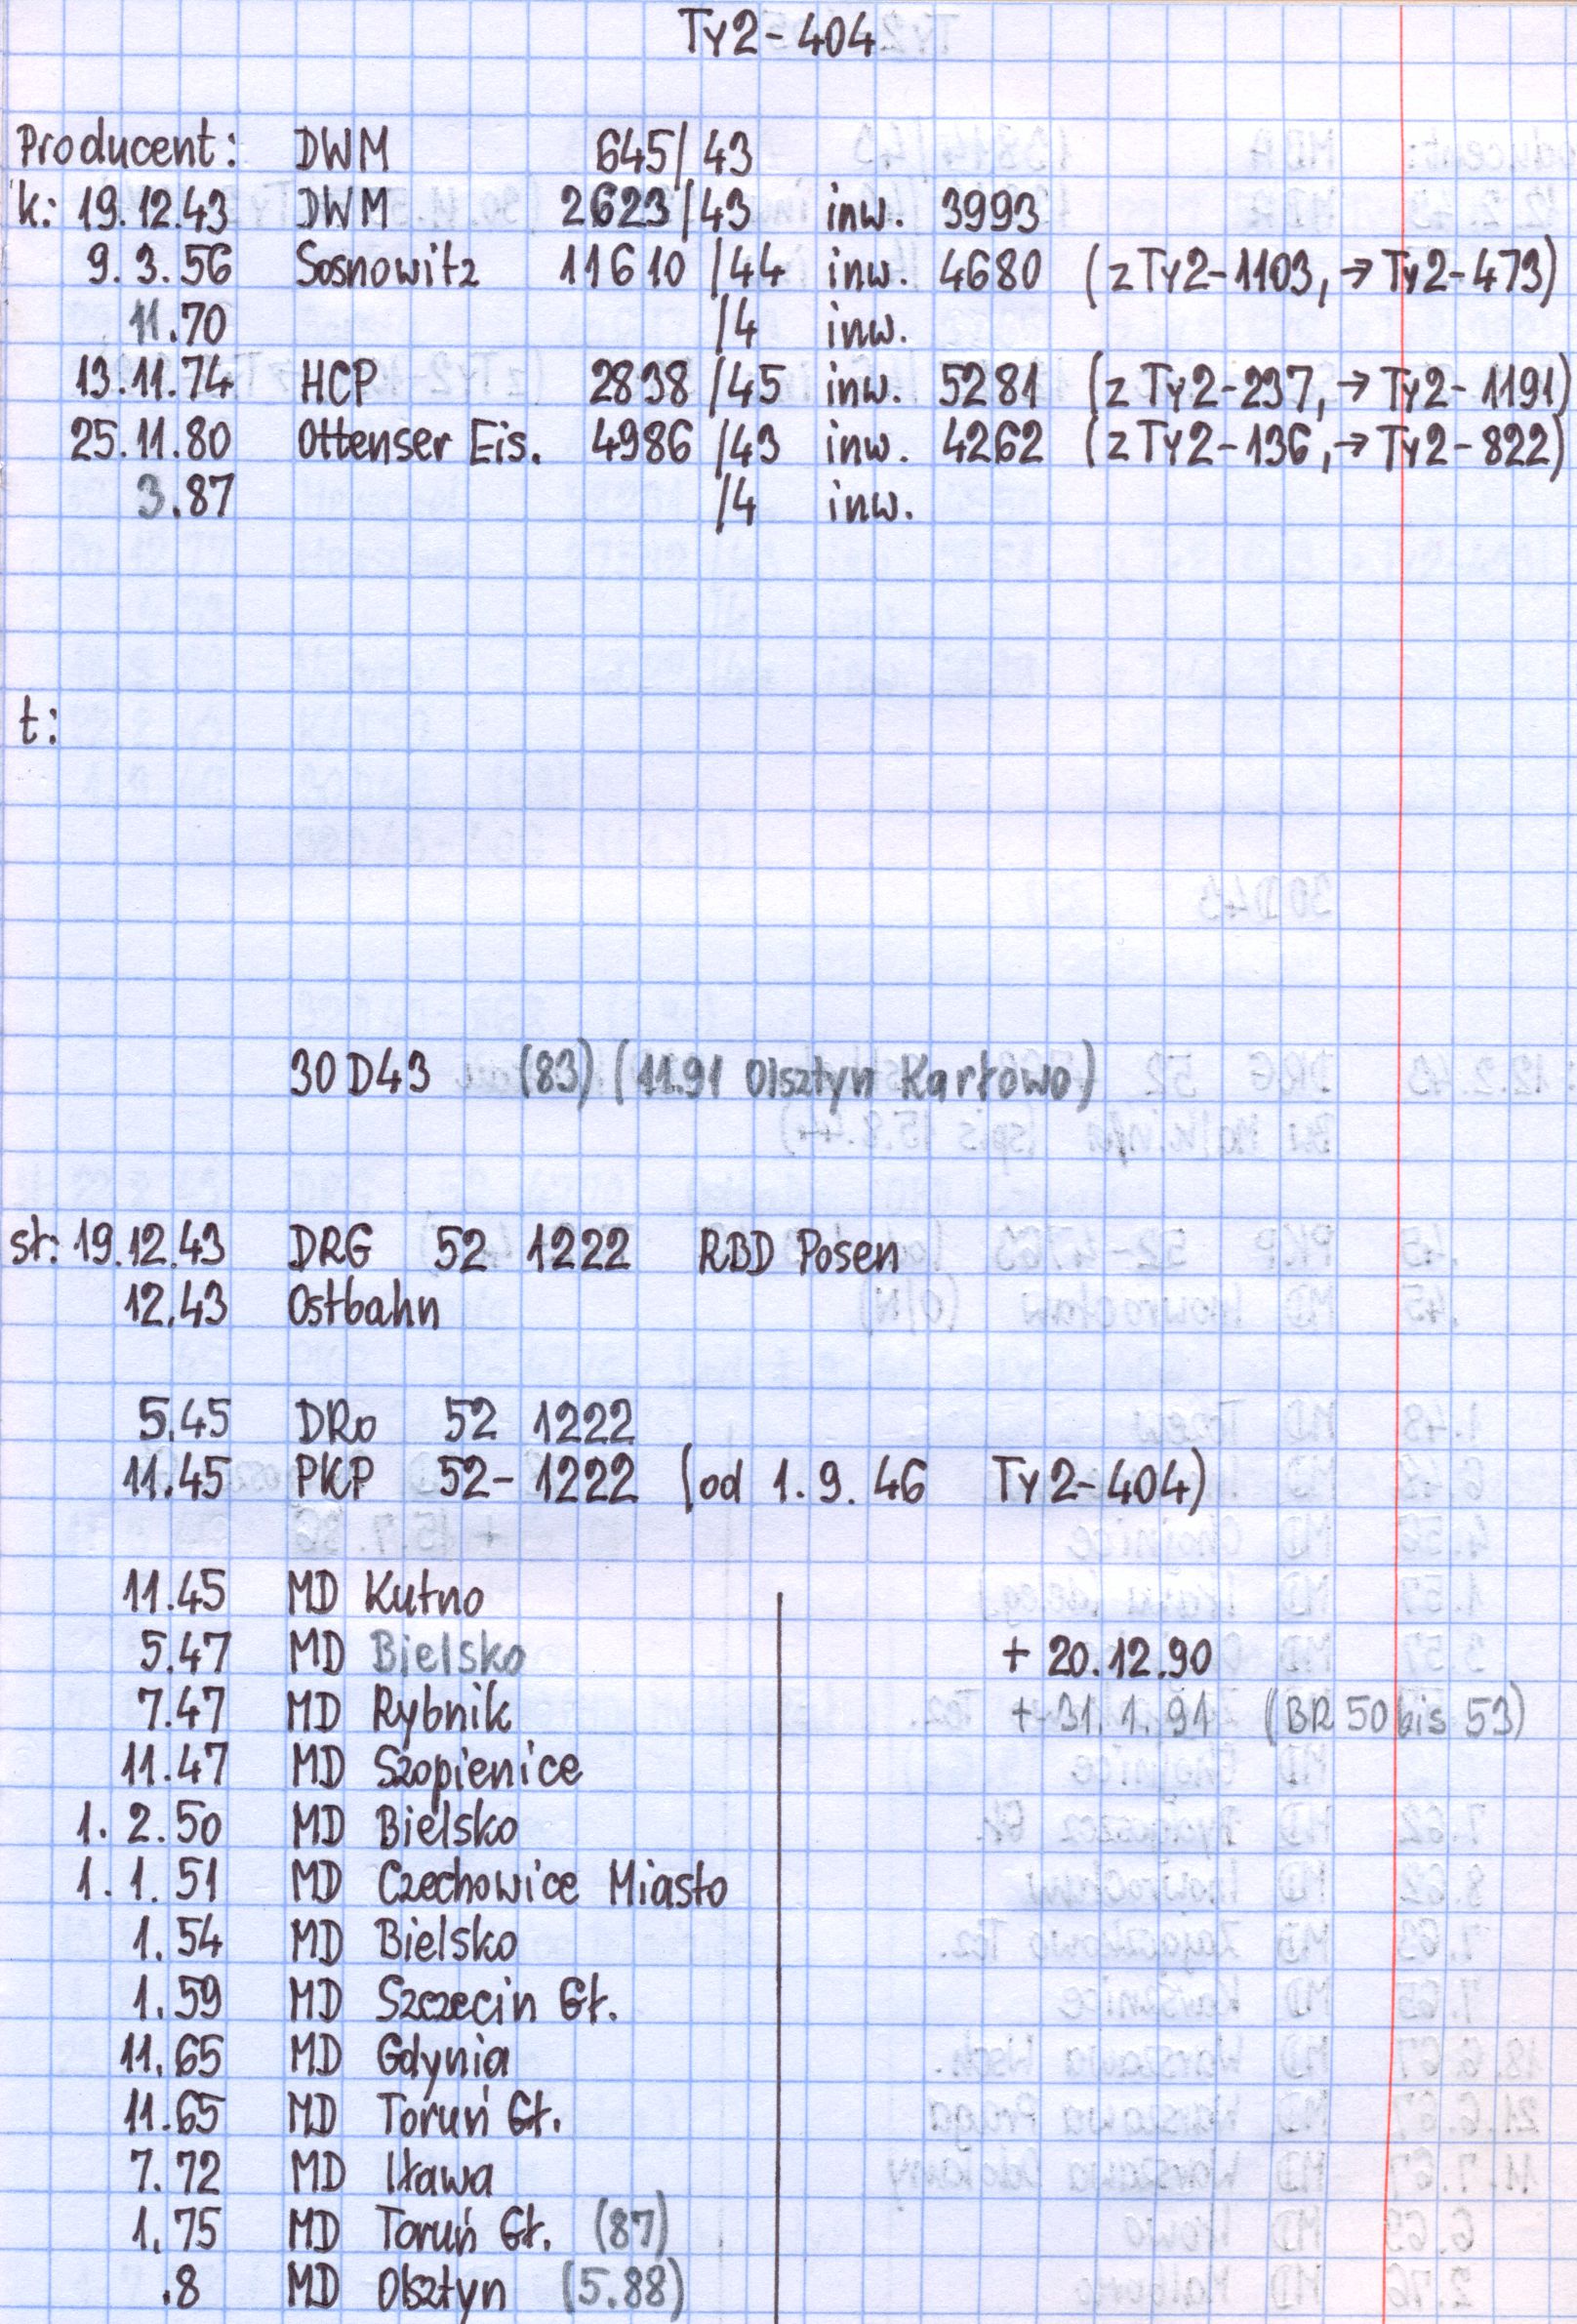 Ty2-404
Producent: DWM 645/43
k: 19.12.43 DWM 2623/43 inw. 3993
9.3.56 Sosnowitz 11610/44 inw. 4680 (z Ty2-1103, → Ty2-473)
11.70 /4 inw.
13.11.74 HCP 2838/45 inw. 5281 (z Ty2-237, → Ty2-1191)
25.11.80 Ottenser Eis. 4986/43 inw. 4262 (z Ty2-136, → Ty2-822)
3.87 /4 inw.
t:
30D43 (83) (11.91 Olsztyn Kartowo)
st: 19.12.43 DRG 52 1222 RBD Posen
12.43 Ostbahn
5.45 DRo 52 1222
11.45 PKP 52-1222 (od 1.9.46 Ty2-404)
11.45 MD Kutno
5.47 MD Bielsko
7.47 MD Rybnik
11.47 MD Szopienice
1.2.50 MD Bielsko
1.1.51 MD Czechowice Miasto
1.54 MD Bielsko
1.59 MD Szczecin Gł.
11.65 MD Gdynia
11.65 MD Toruń Gł.
7.72 MD Iława
1.75 MD Toruń Gł. (87)
.8 MD Olsztyn (5.88)
+ 20.12.90
+ 31.1.91 (BR 50 bis 53)